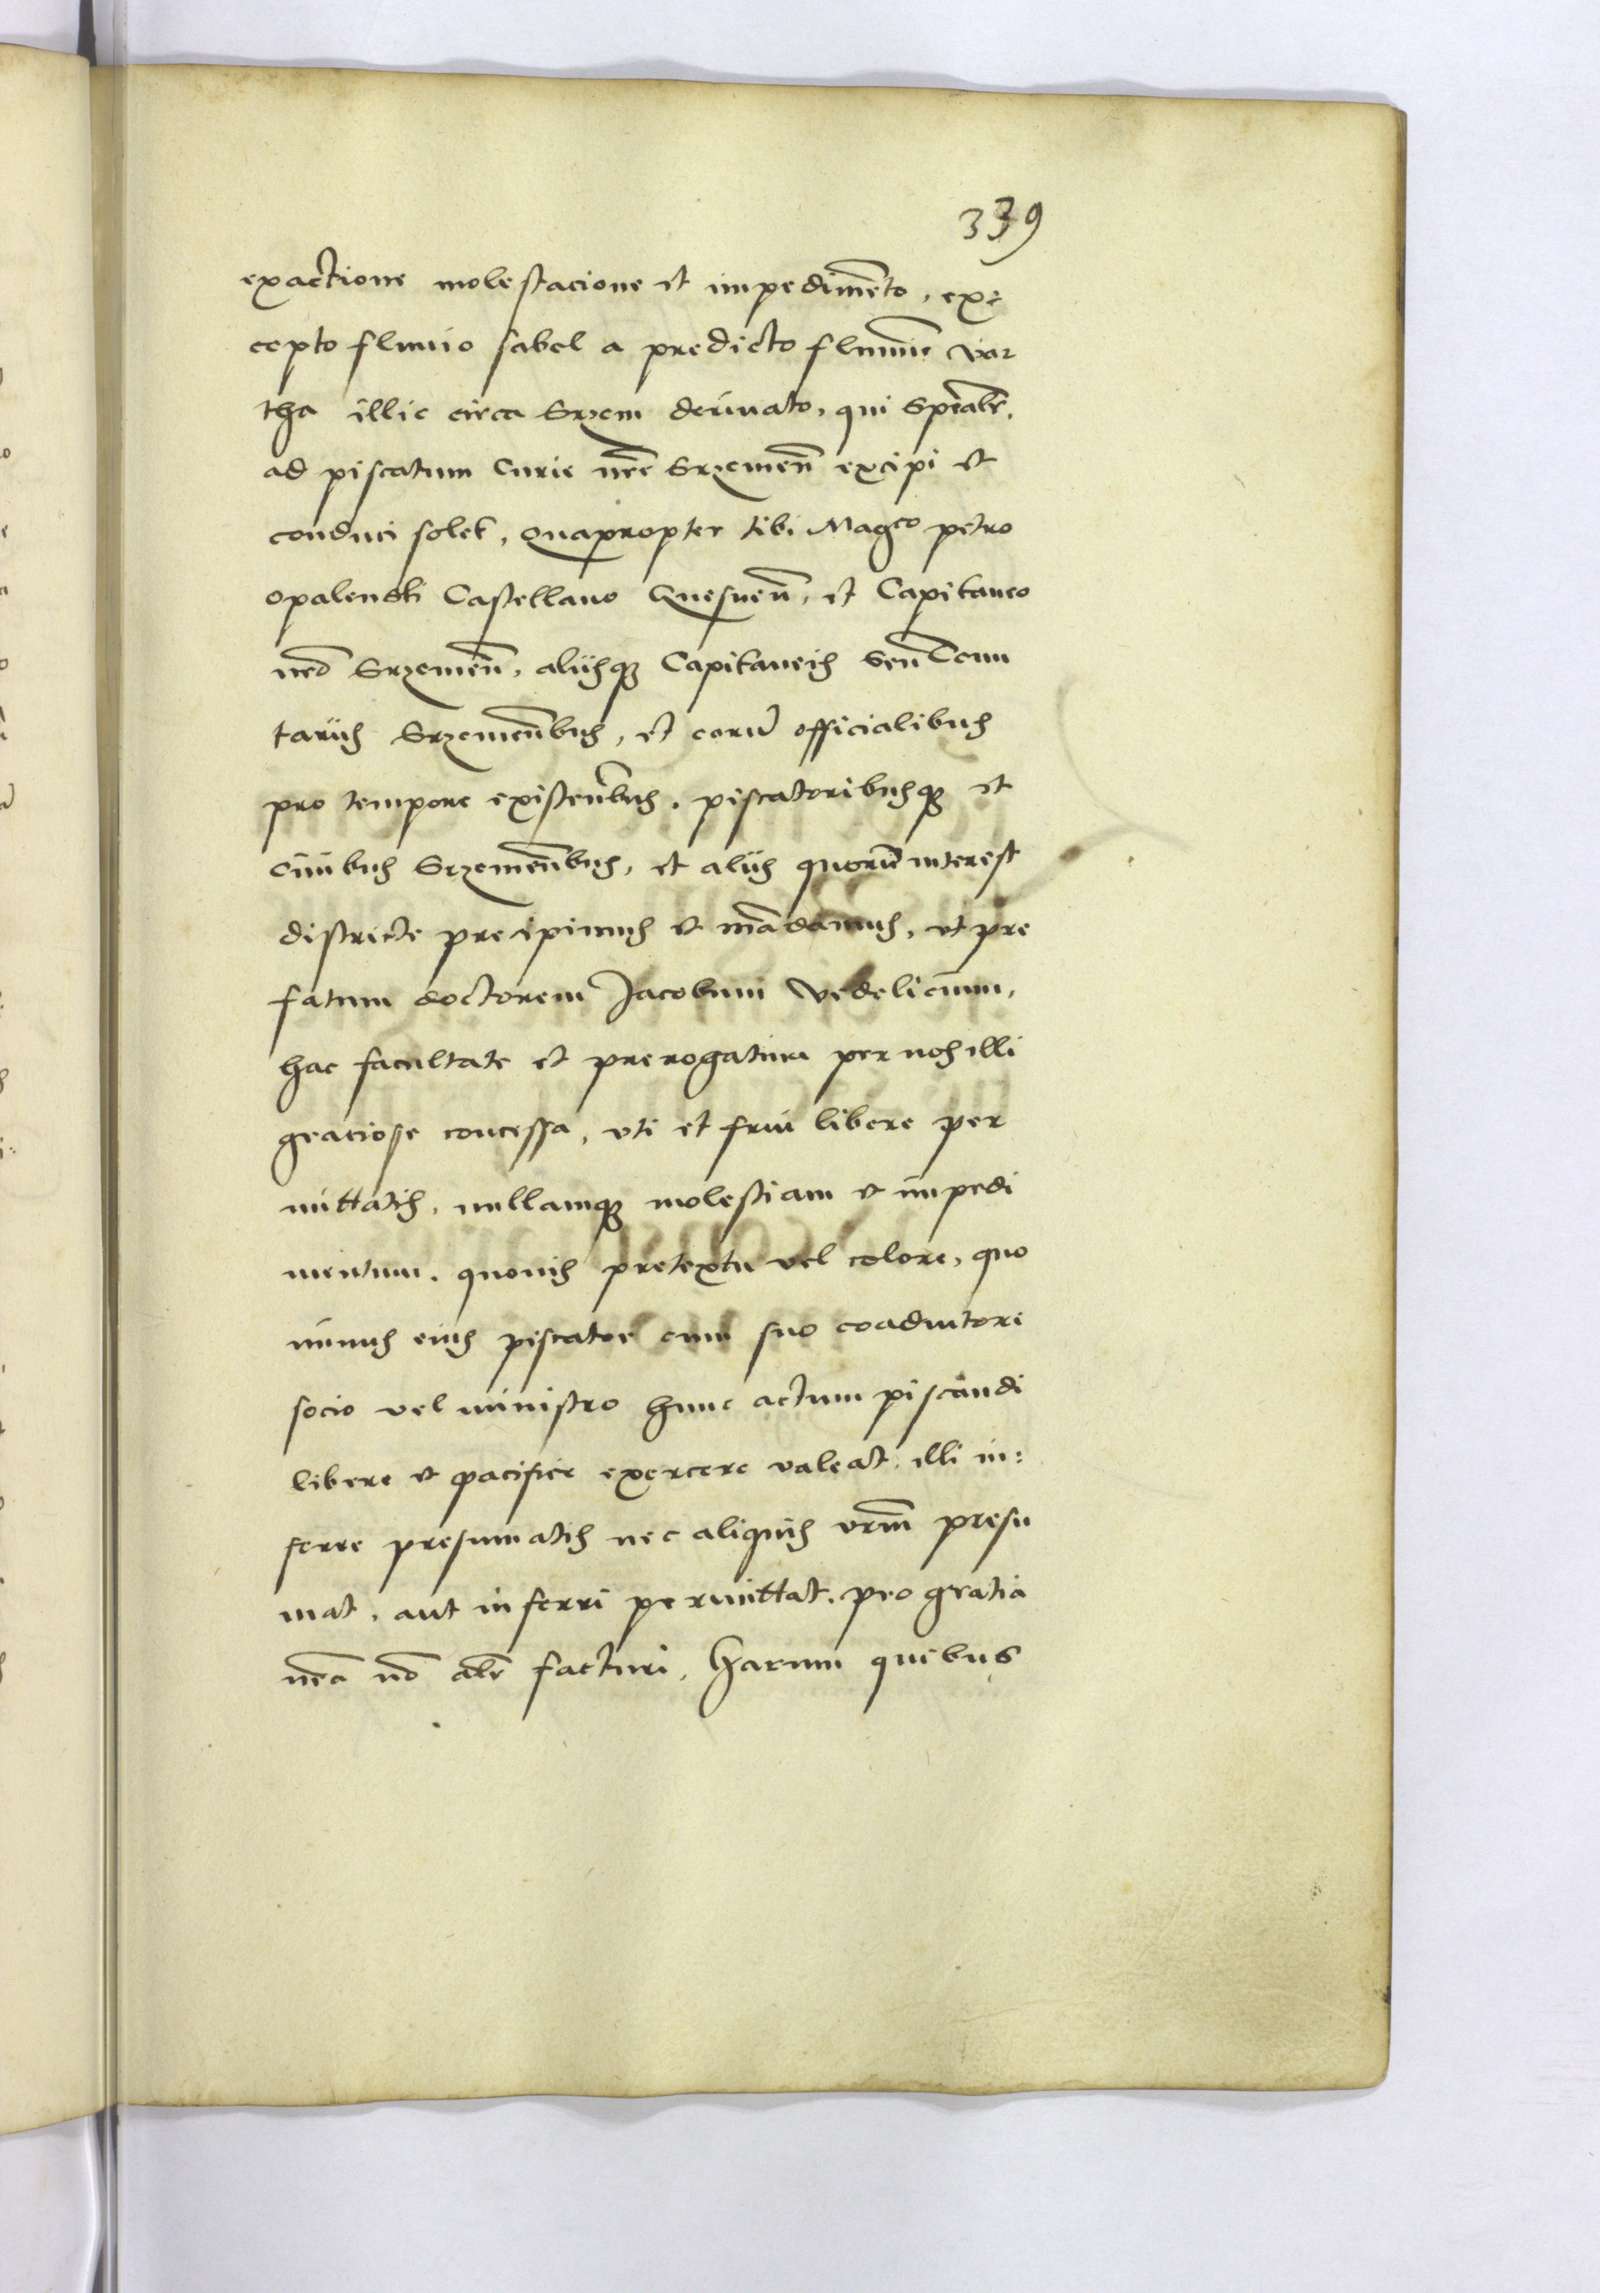 339
exactione molestacione et impedimẽto, ex=
cepto fluuio sabel a predicto flumĩe war
tha illic circa Srzem deriuato, qui Sp̃ealr̃.
ad piscatum Curie nr̃e Srzemeñ excipi et
conduci solet, Quapropter tibi Magco petro
opalensky Castellano Gnesneñ, et Capitaneo
nr̃o Srzemeñ, alijsq₃ Capitaneis seu Tenu
tarijs Srzemeñbus, et eorũ officialibus
pro tempore existeñbus, piscatoribusq₃ et
Ciuibus Srzemeñbus, et alijs quorũ interest
districte precipimus et mãdamus, vt pre
fatum doctorem Jacobum Vedelicium,
hac facultate et prerogatiua per nos illi
graciose concessa, vti et frui libere per
mittatis, nullamq₃ molestiam et impedi
mentum, quouis pretextu vel colore, quo
minus eius piscator cum suo coadiutore
socio vel ministro hunc actum piscandi
libere et pacifice exercere valeat, illi in=
ferre presumatis nec aliquis vr̃m presu
mat, aut inferri permittat, pro gratia
nr̃a nõ alr̃ facturi, Harum quibus